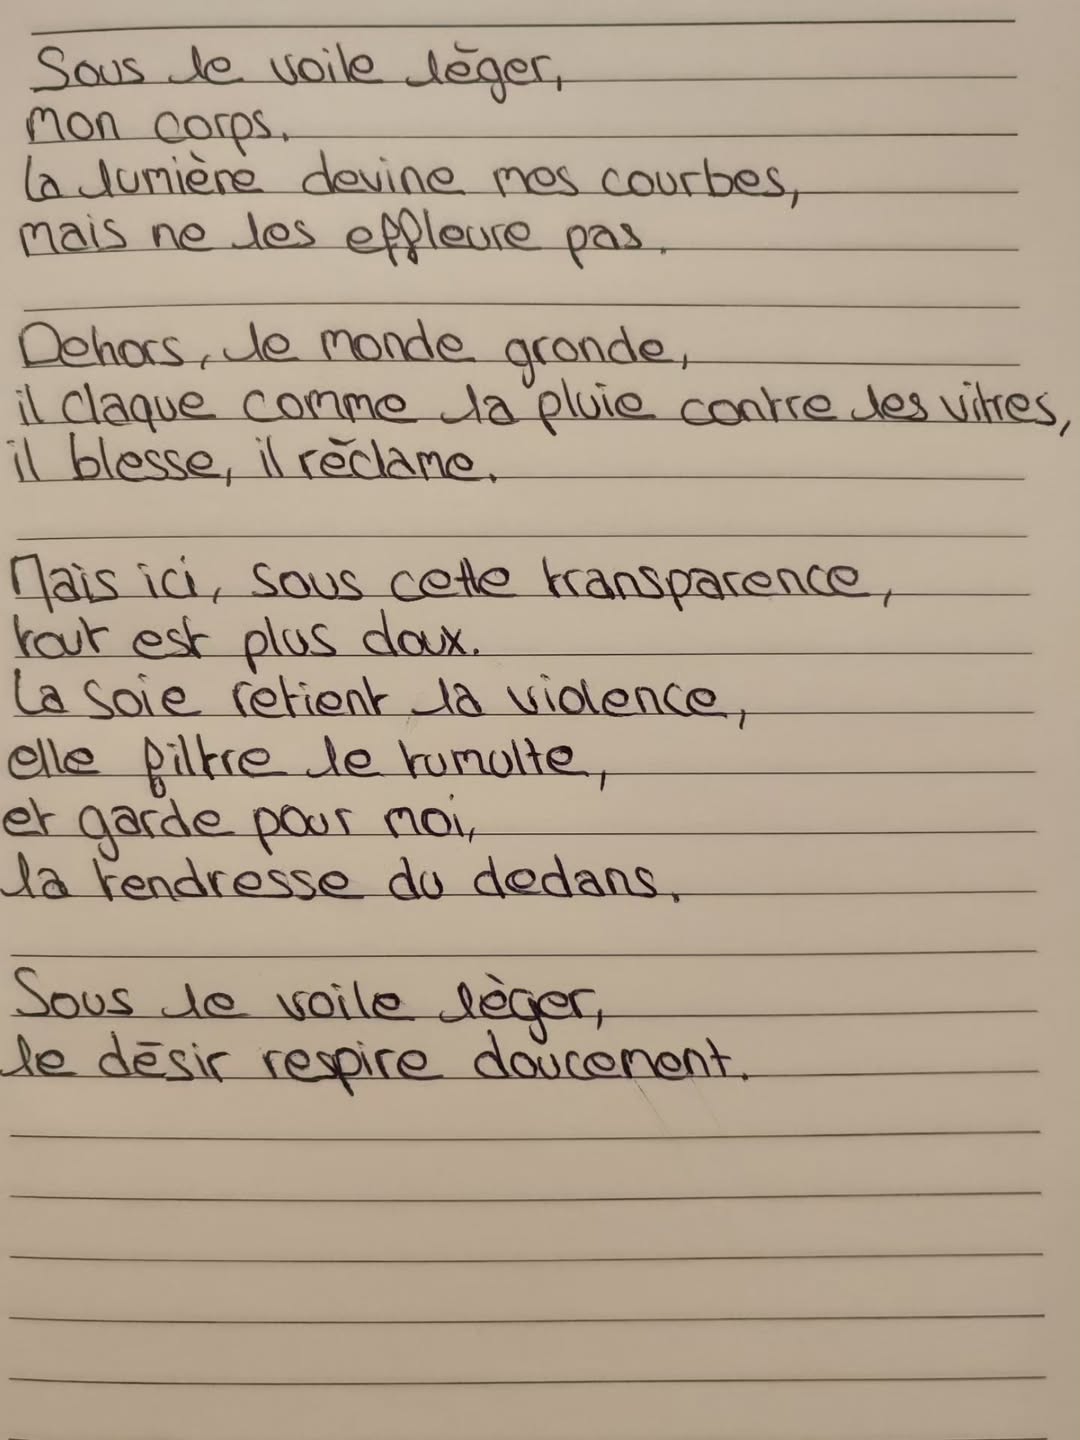 Sous le voile léger,
mon corps.
la lumière devine mes courbes,
mais ne les effleure pas.
Dehors, le monde gronde,
il claque comme la pluie contre les vitres,
il blesse, il réclame.
Mais ici, sous cette transparence,
tout est plus doux.
la soie retient la violence,
elle filtre le tumulte,
et garde pour moi,
la tendresse du dedans.
Sous le voile lèger,
le désir respire doucement.